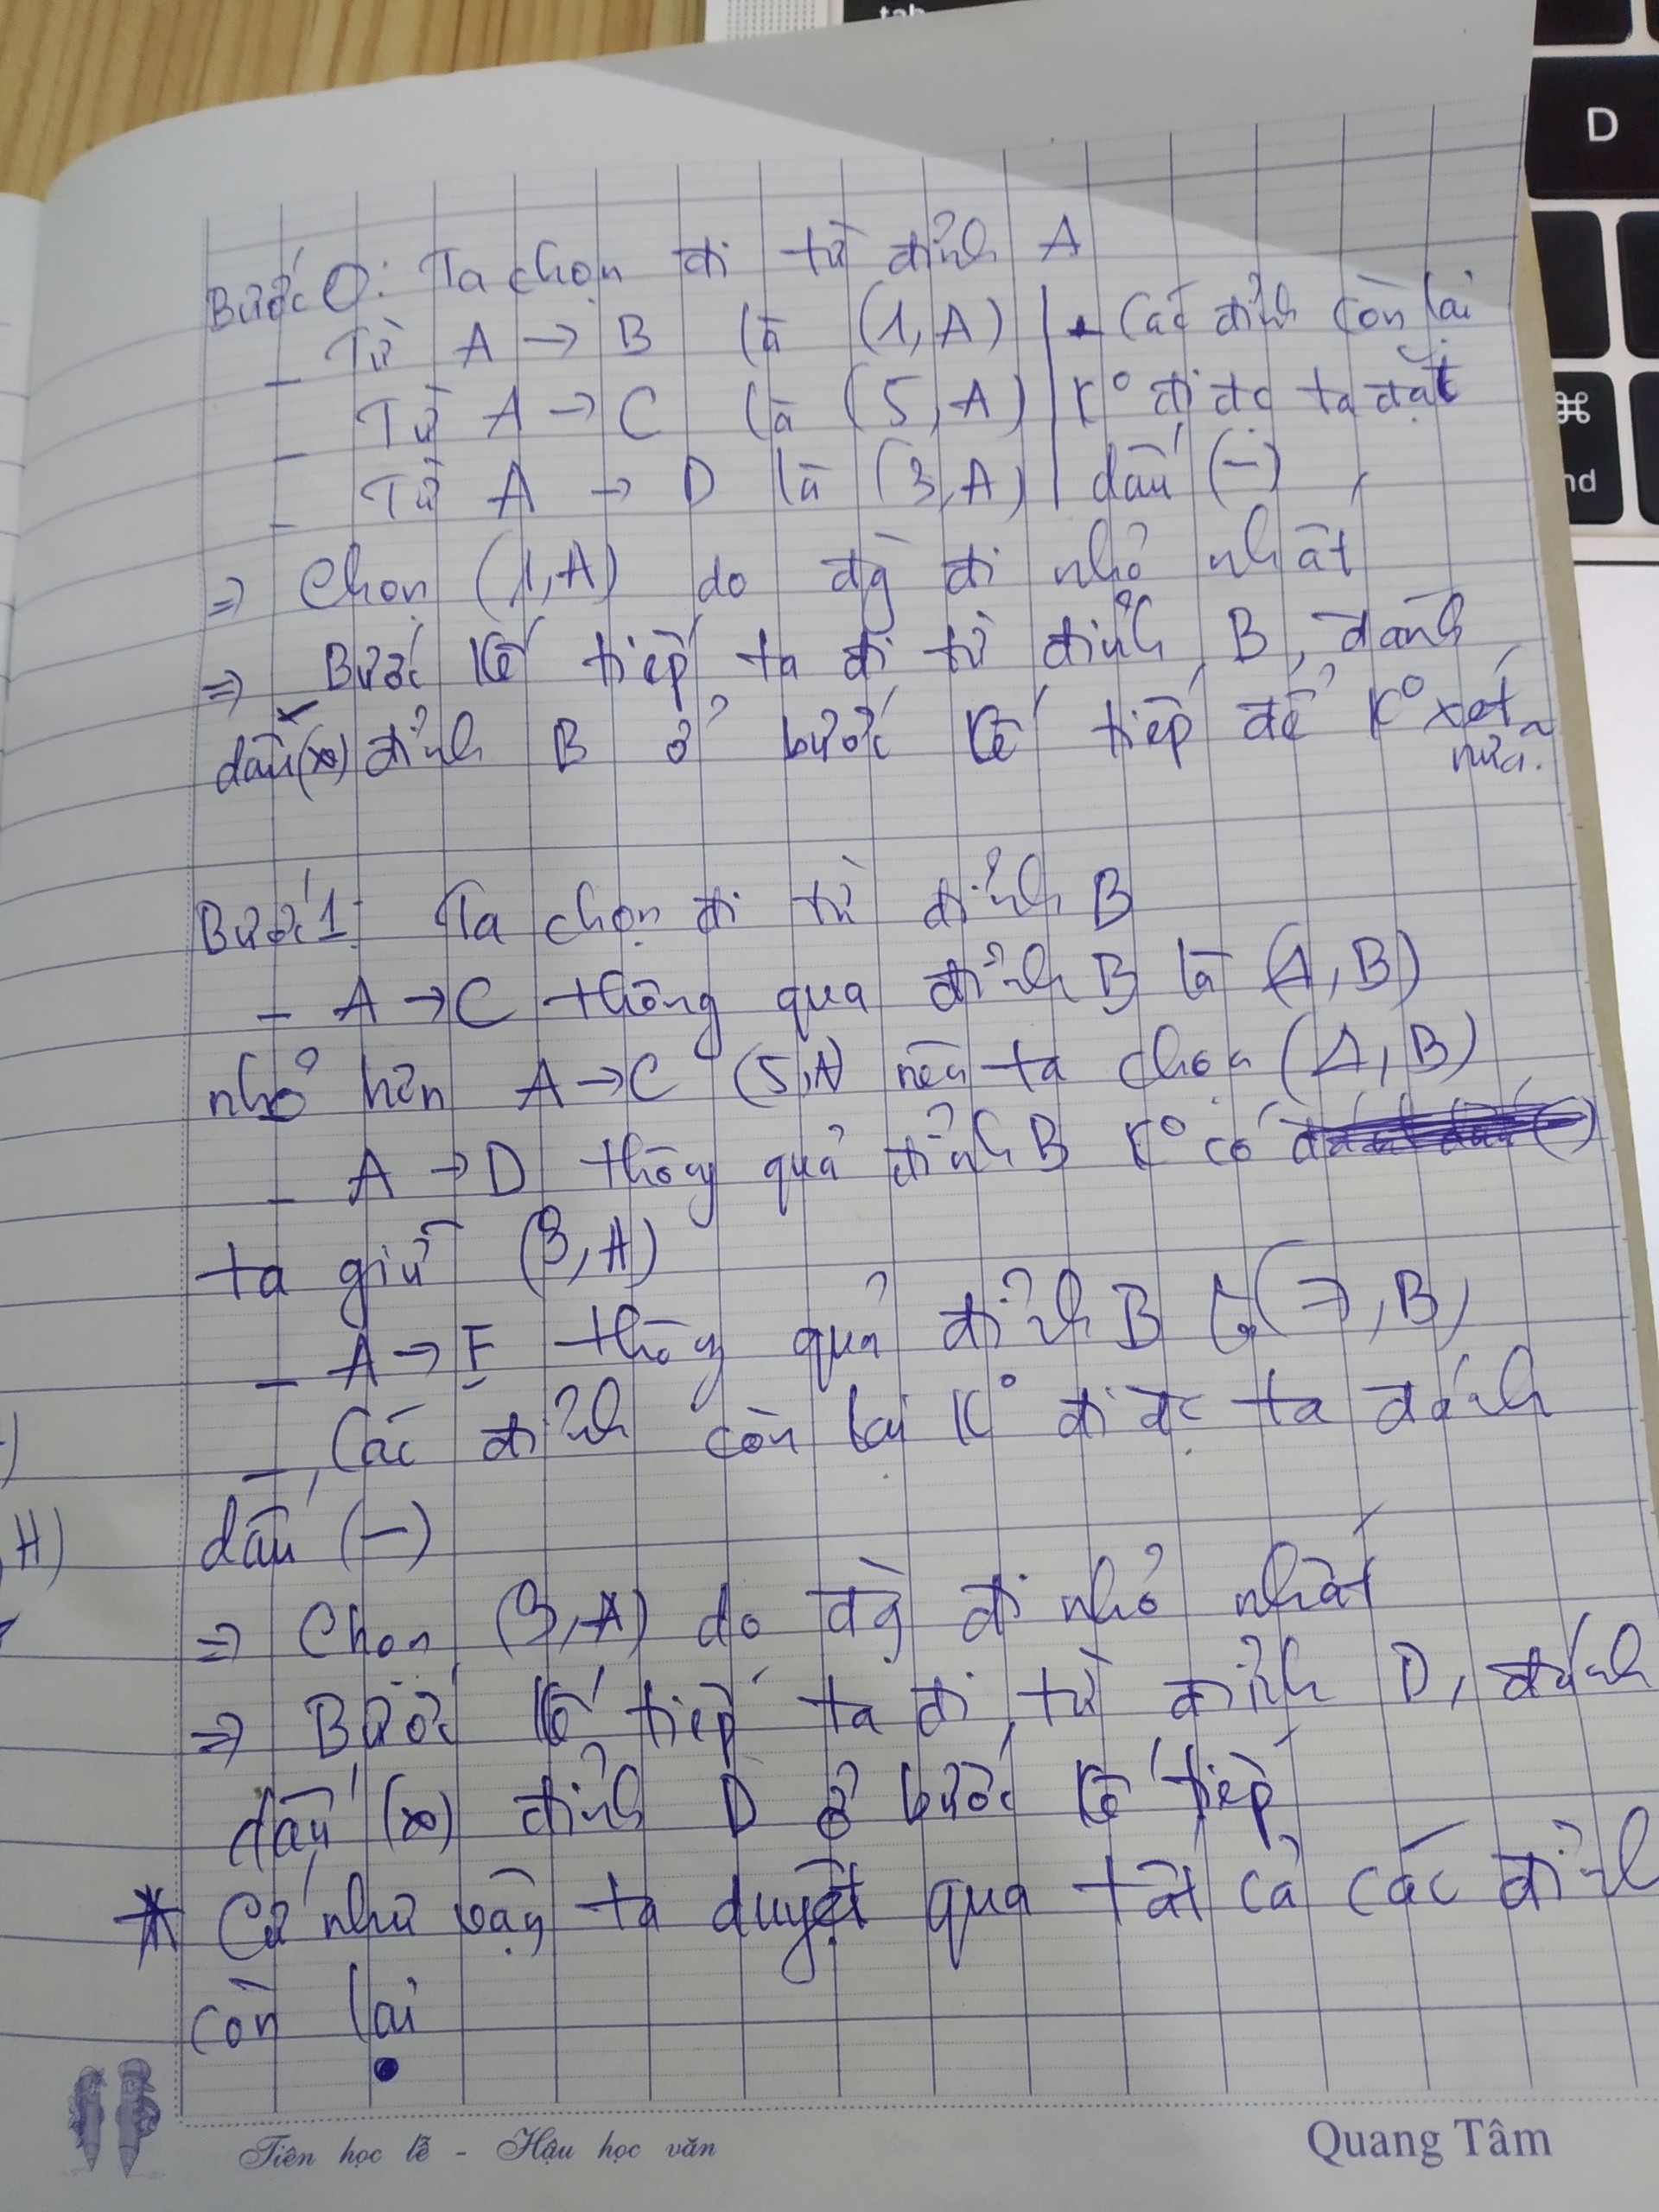 tab
D
⌘
nd
Bước 0: Ta chọn đi từ đỉnh A
- Từ A → B là (1, A) | - Các đỉnh còn lại
- Từ A → C là (5, A) | K° đi đc ta đặt
- Từ A → D là (3, A) | dấu (-)
⇒ Chọn (1, A) do đg đi nhỏ nhất
⇒ Bước kế tiếp ta đi từ đỉnh B, đánh
dấu (∞) đỉnh B ở bước kế tiếp để K° xét
nữa.
Bước 1: Ta chọn đi từ đỉnh B
- A → C thông qua đỉnh B là (4, B)
nhỏ hơn A → C (5, A) nên ta chọn (4, B)
- A → D thông quả đỉnh B K° có
ta giữ (3, A)
- A → F thông quả đỉnh B là (7, B)
- Các đỉnh còn lại K° đi đc ta đánh
)
dấu (-)
, H)
⇒ Chọn (3, A) do đg đi nhỏ nhất
⇒ Bước kế tiếp ta đi từ đỉnh D, đánh
dấu (∞) đỉnh D ở bước kế tiếp
* Cứ như vậy ta duyệt qua tất cả các đỉnh
còn lại
Tiên học lễ - Hậu học văn
Quang Tâm